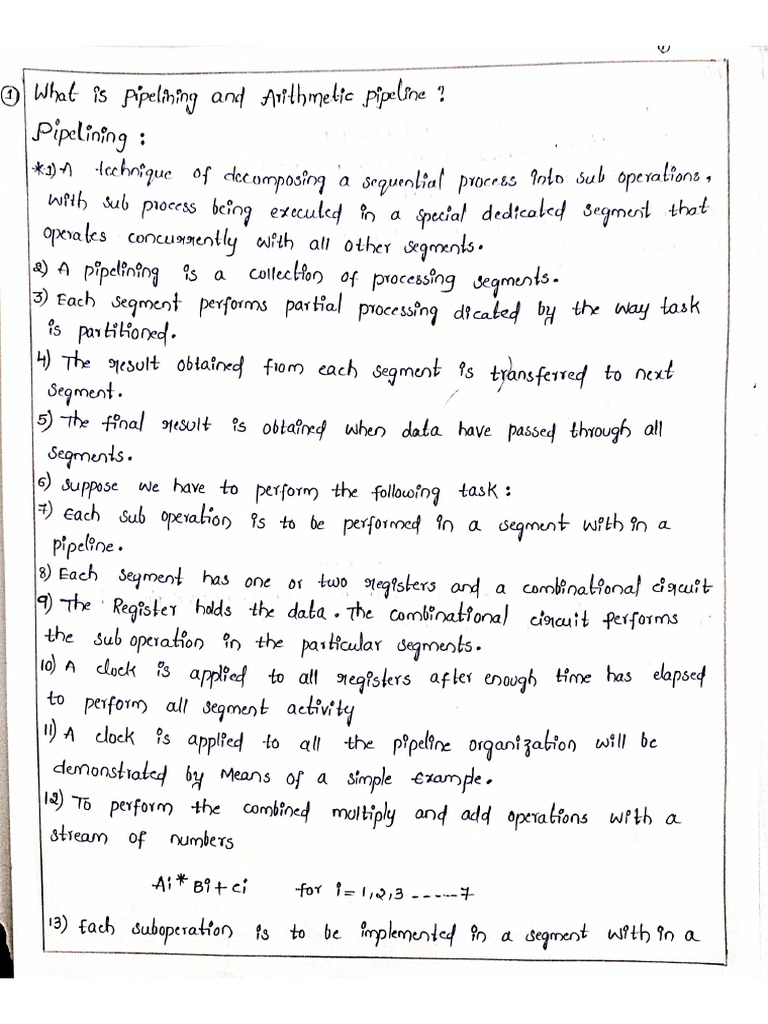 1) What is pipelining and Arithmetic pipeline ?
Pipelining :
*1) A technique of decomposing a sequential process into sub operations,
with sub process being executed in a special dedicated segment that
operates concurrently with all other segments.
2) A pipelining is a collection of processing segments.
3) Each segment performs partial processing dicated by the way task
is partitioned.
4) The result obtained from each segment is transferred to next
segment.
5) The final result is obtained when data have passed through all
segments.
6) Suppose we have to perform the following task :
7) Each sub operation is to be performed in a segment with in a
pipeline.
8) Each segment has one or two registers and a combinational circuit
9) The Register holds the data. The combinational circuit performs
the sub operation in the particular segments.
10) A clock is applied to all registers after enough time has elapsed
to perform all segment activity
11) A clock is applied to all the pipeline organization will be
demonstrated by Means of a simple Example.
12) To perform the combined multiply and add operations with a
stream of numbers
Ai * Bi + Ci for i = 1,2,3 ------7
13) Each suboperation is to be implemented in a segment with in a